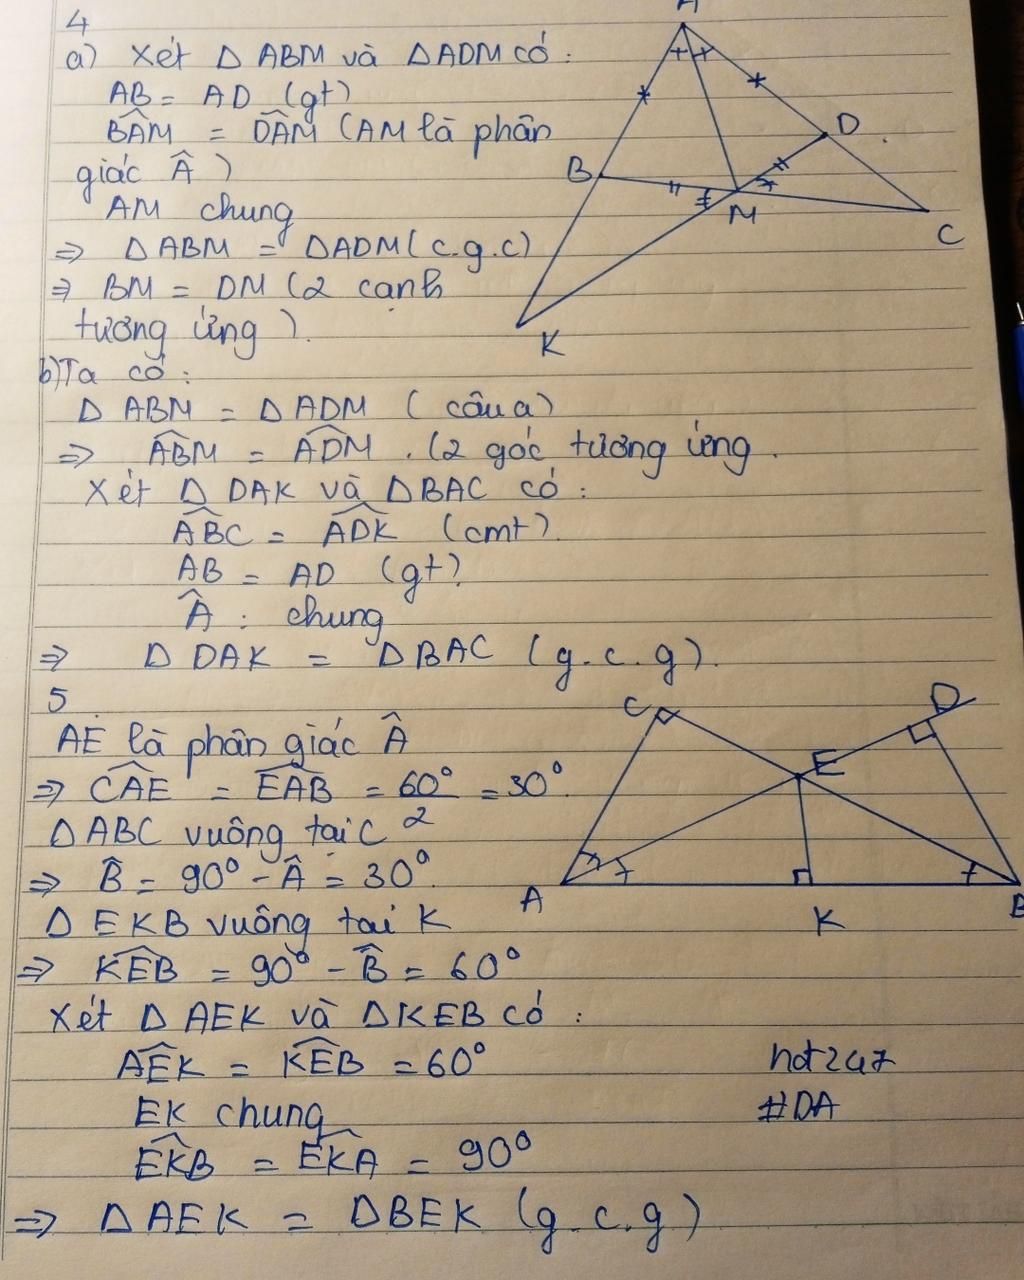 4
a) Xét Δ ABM và ΔADM có :
AB = AD (gt)
B̂AM = D̂AM (AM là phân
giác Â )
AM chung
⇒ Δ ABM = ΔADM (c.g.c)
⇒ BM = DM (2 cạnh
tương ứng ).
b) Ta có :
Δ ABM = Δ ADM ( câu a)
⇒ ÂBM = ÂDM . (2 góc tương ứng .
Xét Δ DAK và ΔBAC có :
ÂBC = ÂDK (cmt).
AB = AD (gt).
Â : chung
⇒ Δ DAK = ΔBAC (g.c.g).
A
B
D
M
C
K
5
AE là phân giác Â
⇒ ĈAE = ÊAB = 60°/2 = 30°.
ΔABC vuông tại C
⇒ B̂ = 90° - Â = 30°.
Δ EKB vuông tại K
⇒ K̂EB = 90° - B̂ = 60°
Xét Δ AEK và ΔKEB có :
ÂEK = K̂EB = 60°
EK chung
ÊKB = ÊKA = 90°
⇒ Δ AEK = ΔBEK (g.c.g)
C
D
E
A
K
B
hdt247
#DA